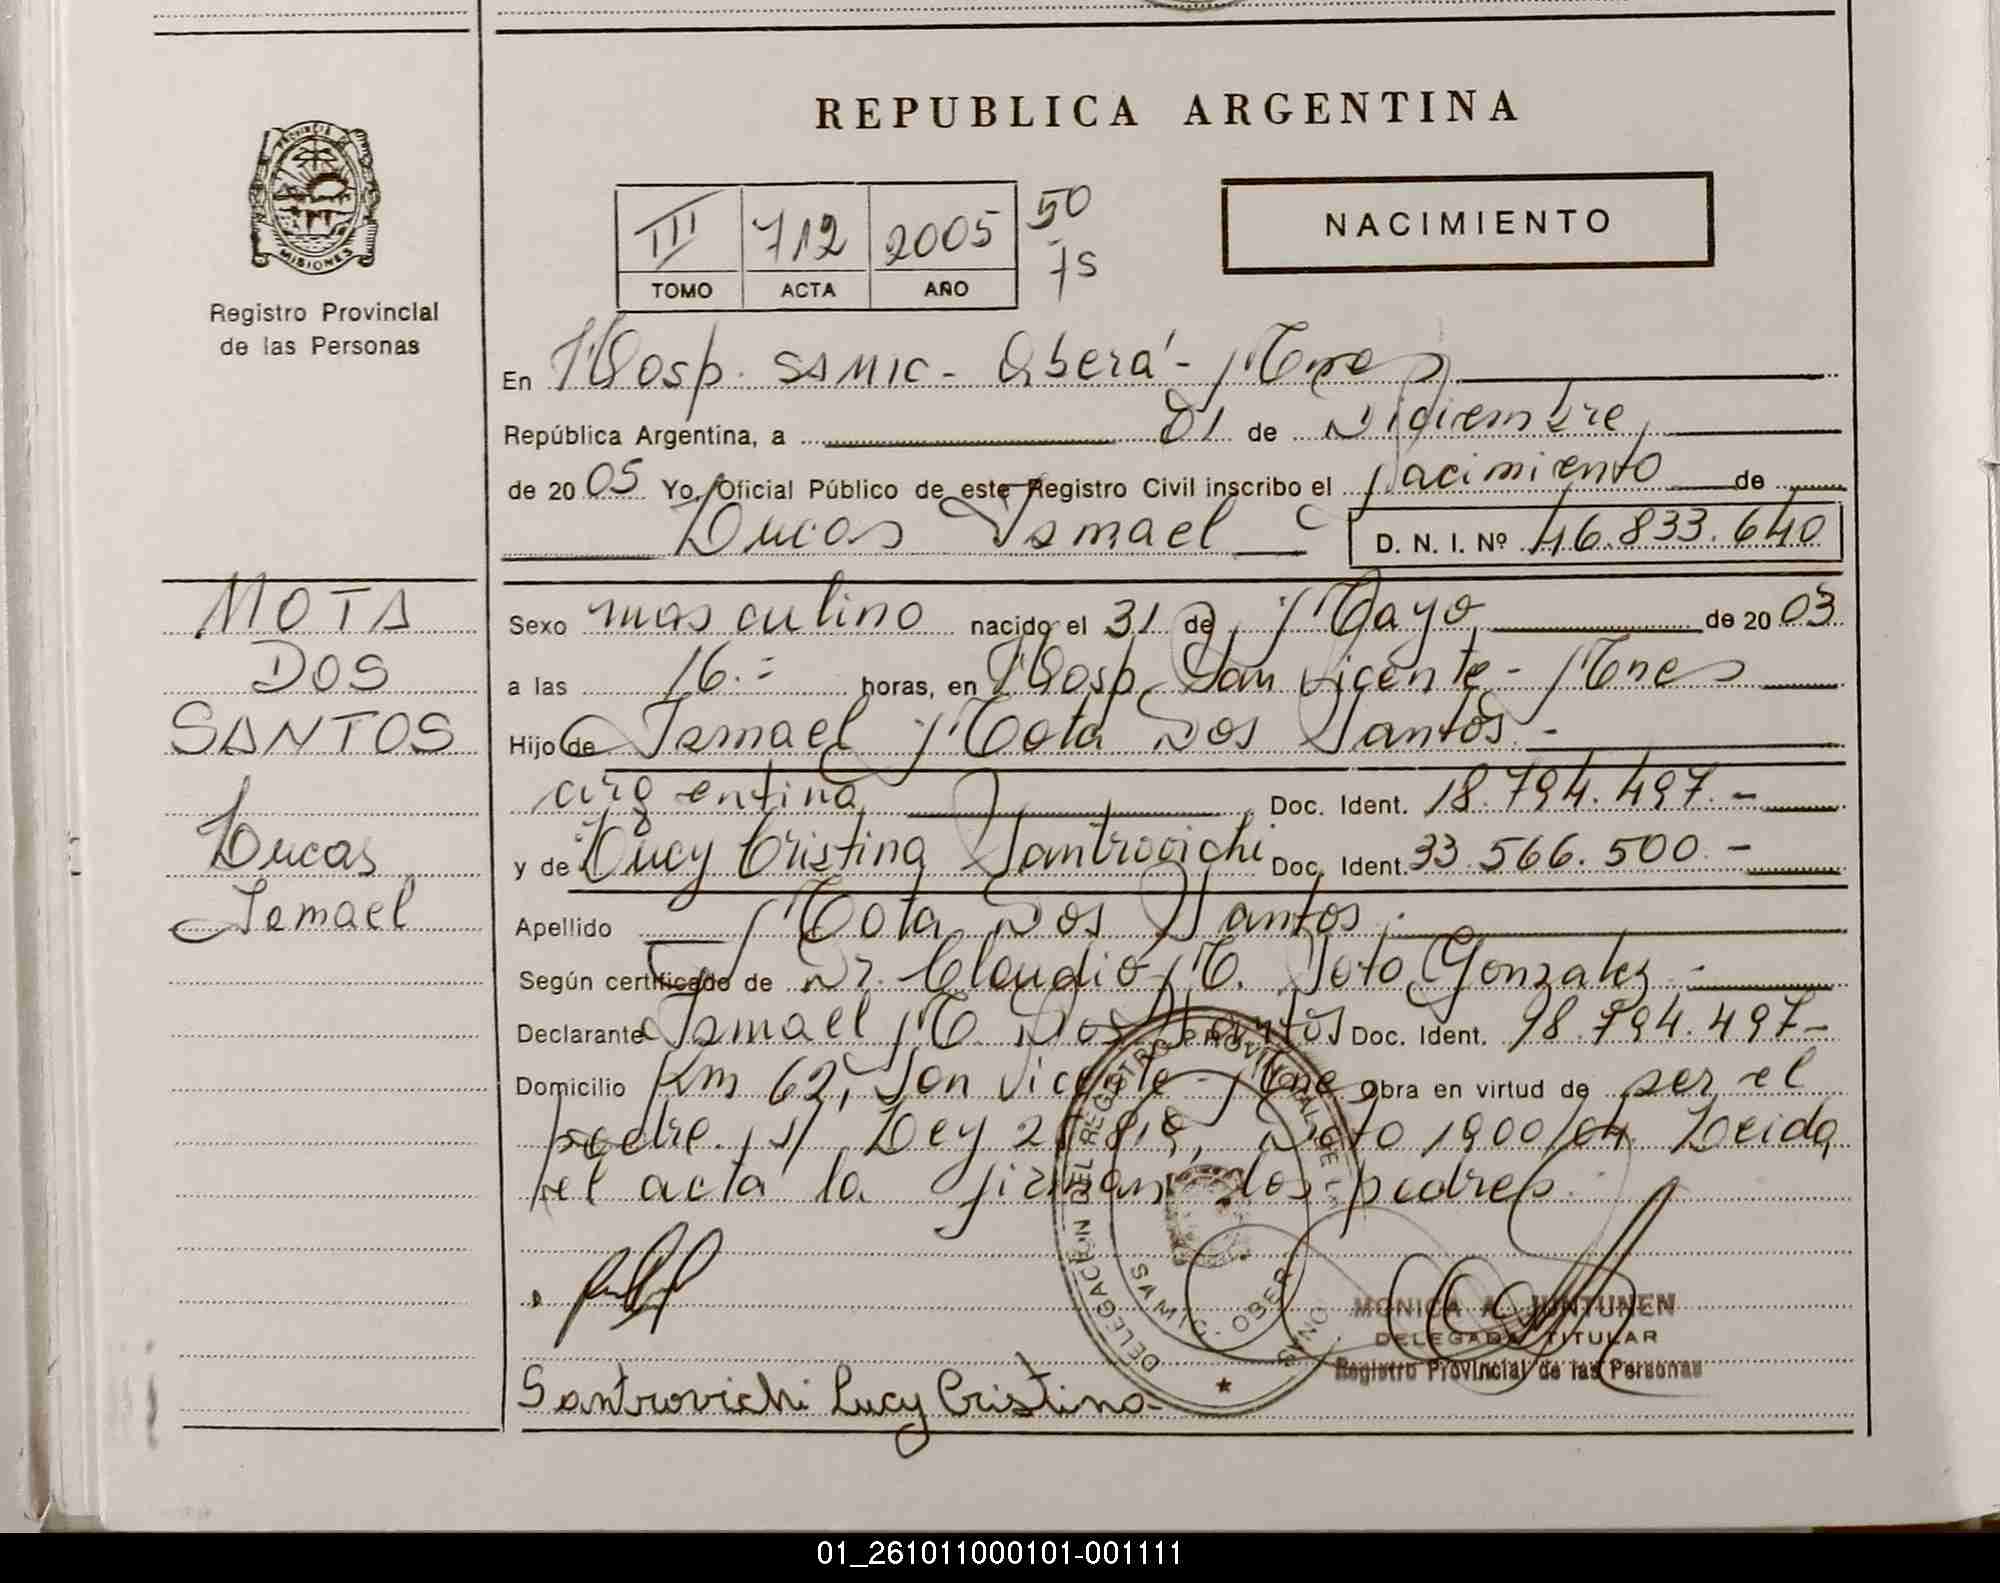 REPUBLICA ARGENTINA
PROVINCIA DE
MISIONES
Registro Provincial
de las Personas
III 712 2005 50
TOMO ACTA AÑO
NACIMIENTO
En Hosp. SAMIC - Oberá - Mnes
República Argentina, a 01 de Diciembre
de 2005 Yo, Oficial Público de este Registro Civil inscribo el Nacimiento de
Lucas Ismael D. N. I. Nº 46.833.640
MOTA
DOS
SANTOS
Lucas
Ismael
Sexo masculino nacido el 31 de Mayo de 2003
a las 16.= horas, en Hosp. San Vicente - Mnes
Hijo de Ismael Mota Dos Santos.-
argentina Doc. Ident. 18.794.497.-
y de Lucy Cristina Santrovichi Doc. Ident. 33.566.500.-
Apellido Mota Dos Santos.
Según certificado de Dr. Claudio M. Soto Gonzalez.-
Declarante Ismael M. Dos Santos Doc. Ident. 98.794.497-
Domicilio Km 62, San Vicente - Mnes Obra en virtud de ser el
padre. s/ Ley 25.819, Dcto 1900/04. Leida
el acta la firman los padres.
DELEGACION DEL REGISTRO PROVINCIAL DE L
SAMIC - OBERA
MONICA A. JUNTUNEN
DELEGADA TITULAR
Registro Provincial de las Personas
Santrovichi Lucy Cristina
01_261011000101-001111